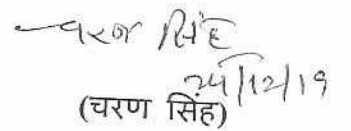 चरण सिंह
24/12/19
(चरण सिंह)